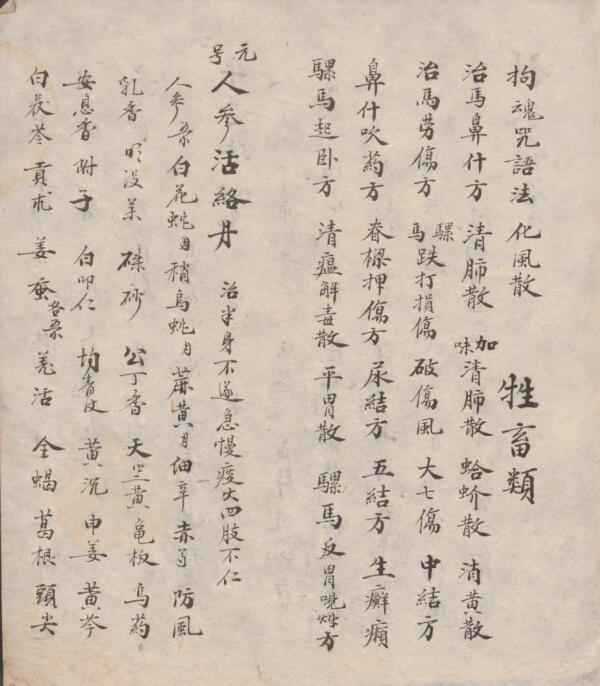 拘魂咒語法 化風散 牲畜類
治馬鼻什方 清肺散 加味清肺散 蛤蚧散 消黃散
治馬労傷方 騾馬跌打損傷 破傷風 大七傷 中結方
鼻什吹葯方 脊樑押傷方 尿結方 五結方 生癬癩
騾馬起卧方 清瘟解毒散 平胃散 騾馬反胃嘔吐方
元号 人參活絡丹 治半身不遂急慢疫火四肢不仁
人參 白花蛇 稍烏蛇 蔴黃 細辛 赤 防風
乳香 明没 硃砂 公丁香 天竺黃 龟板 烏葯
安息香 附子 白叩仁 均青皮 黃沉 申姜 黃芩
白茯苓 貢朮 姜蚕 羌活 全蝎 葛根 頭尖